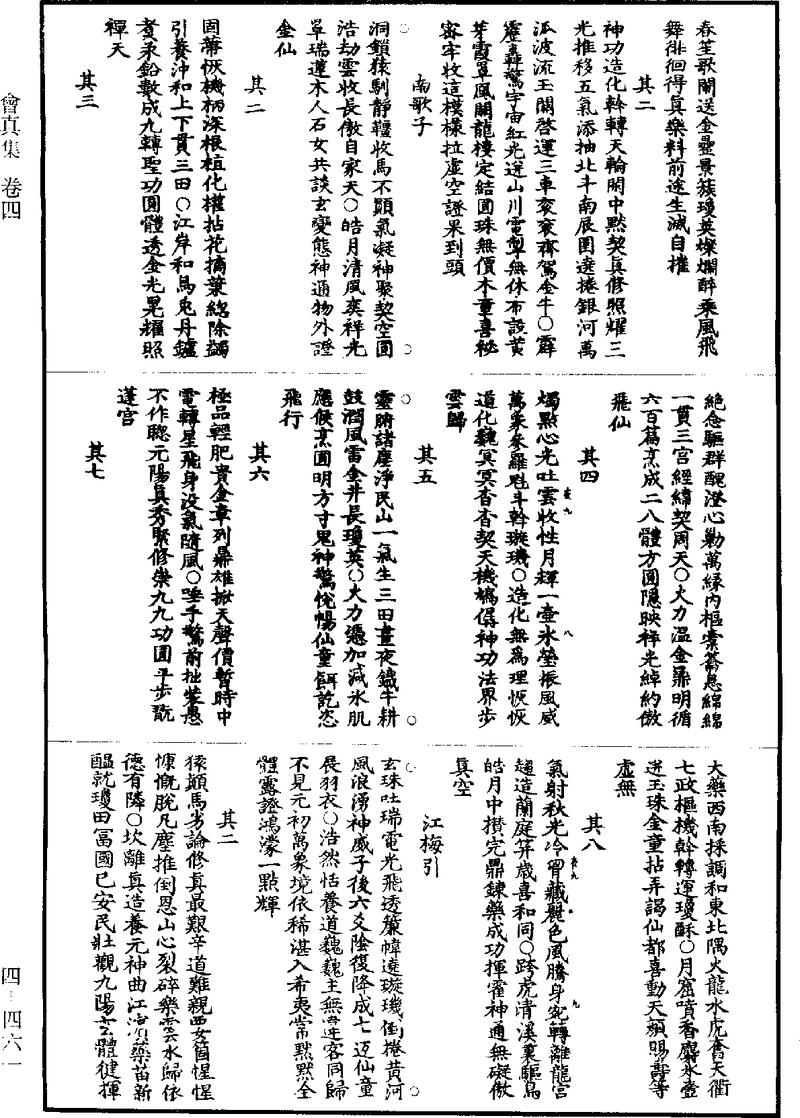 會真集 卷四
春笙歌鬧送金罍景簇瓊英燦爛醉乘風飛
舞徘徊得真樂料前途生滅自摧
其二
神功造化斡轉天輪閑中默契真修照耀三
光推移五氣添抽北斗南辰圍遶捲銀河萬
派波流玉關啓運三車衮衮齊駕金牛○霹
靂轟驚宇宙紅光迸山川電掣無休布設黃
芽霞罩風關龍樓定結圓珠無價木童喜祕
密牢收這模樣拉虛空證果到頭
南歌子
洞鎖猿馴靜韁收馬不顛氣凝神聚契空圓
浩劫雲收長傲自家天○皓月清風奕祥光
單瑞蓮木人石女共談玄變態神通物外證
金仙
其二
固蒂恢機柄深根植化權拈花摘葉總除蠲
引養沖和上下貫三田○江岸和烏兔丹鑪
煑汞鉛數成九轉聖功圓體透金光晃耀照
禪天
其三
絕念驅群醜澄心勦萬緣內樞橐籥息綿綿
一貫三宮經緯契周天○火力溫金鼎明循
六百篇烹成二八體方圓隱映祥光綽約傲
飛仙
其四
燭點心光吐雲收性月輝一壺氷瑩振風威
萬象森羅魁斗斡璇璣○造化無爲理恢恢
道化巍冥冥杳杳契天機鴆僝神功法界步
雲歸
其五
靈腑諸塵淨民山一氣生三田晝夜鐵牛耕
鼓潤風雷金井長瓊英○火力憑加減氷肌
應候烹圓明方寸鬼神驚恍惕仙童餌訖恣
飛行
其六
極品輕肥貴金章列鼎雄掀天聲價暫時中
雷轉星飛身没氣隨風○唾手驚前拙裝愚
不作聰元陽真秀緊修崇九九功圓平步翫
蓬宮
其七
大藥西南採調和東北隅火龍水虎奮天衢
七政樞機斡轉運瓊酥○月窟噴香麝氷壺
迸玉珠金童拈弄謁仙都喜動天顏賜壽等
虛無
其八
氣射秋光冷胷藏曉色風騰身宛轉離龍宮
趨造蘭庭笄歲喜和同○跨虎清溪裏驅烏
皓月中攅完鼎鍊藥成功揮霍神通無礙傲
真空
江梅引
玄珠吐瑞電光飛透簾幃遶璇璣倒捲黃河
風浪湧神威子後六爻陰復降成七迈仙童
展羽衣○浩然恬養道巍巍主無違客同歸
不見元初萬象境依稀湛入希夷常默默全
體露證鴻濛一點輝
其二
猿顛馬劣論修真最艱辛道難親要箇惺惺
慷慨脫凡塵推倒恩山心裂碎樂雲水歸依
德有隣○坎離真造養元神曲江濱藥苗新
醖就瓊田冨國已安民壯觀九陽玄體健揮
四三-四六一